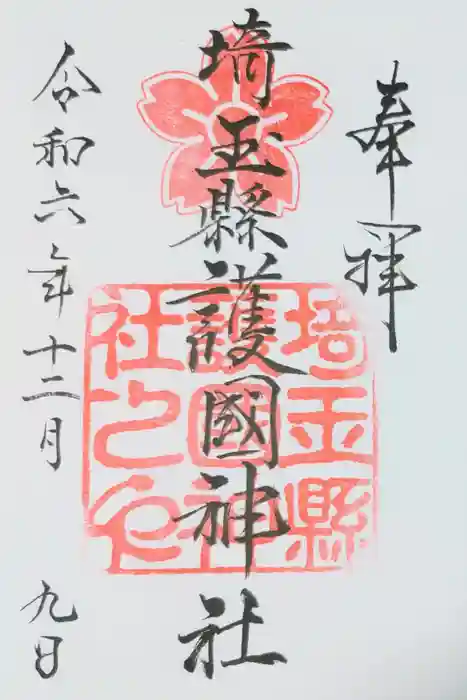 奉拝
埼玉縣護國神社
埼玉縣
護國神
社之印
令和六年十二月九日